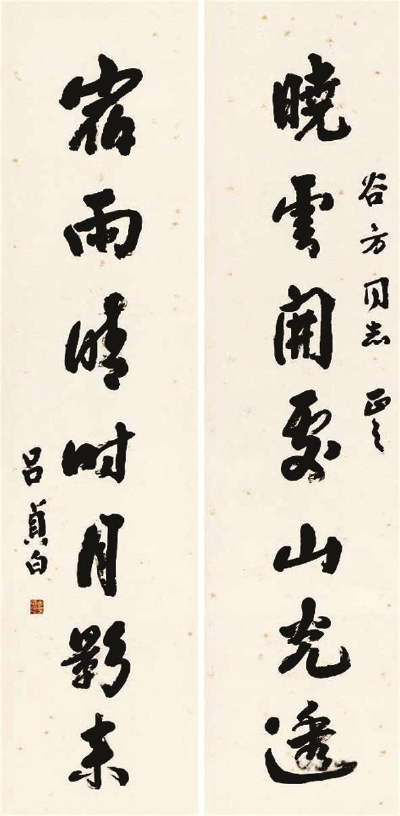 曉雲開處山光透
谷方同志正之
宿雨晴时月影来
吕貞白